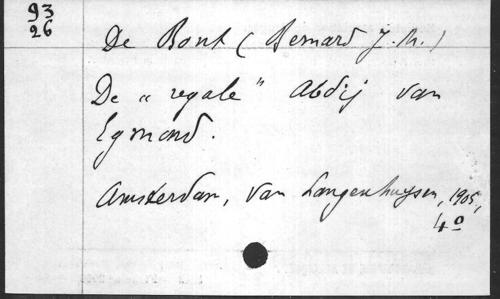 93
26
De Bont (Bernard J. M.)
De „ regale " Abdij van
Egmond.
Amsterdam, van Langenhuysen, 1905,
4º